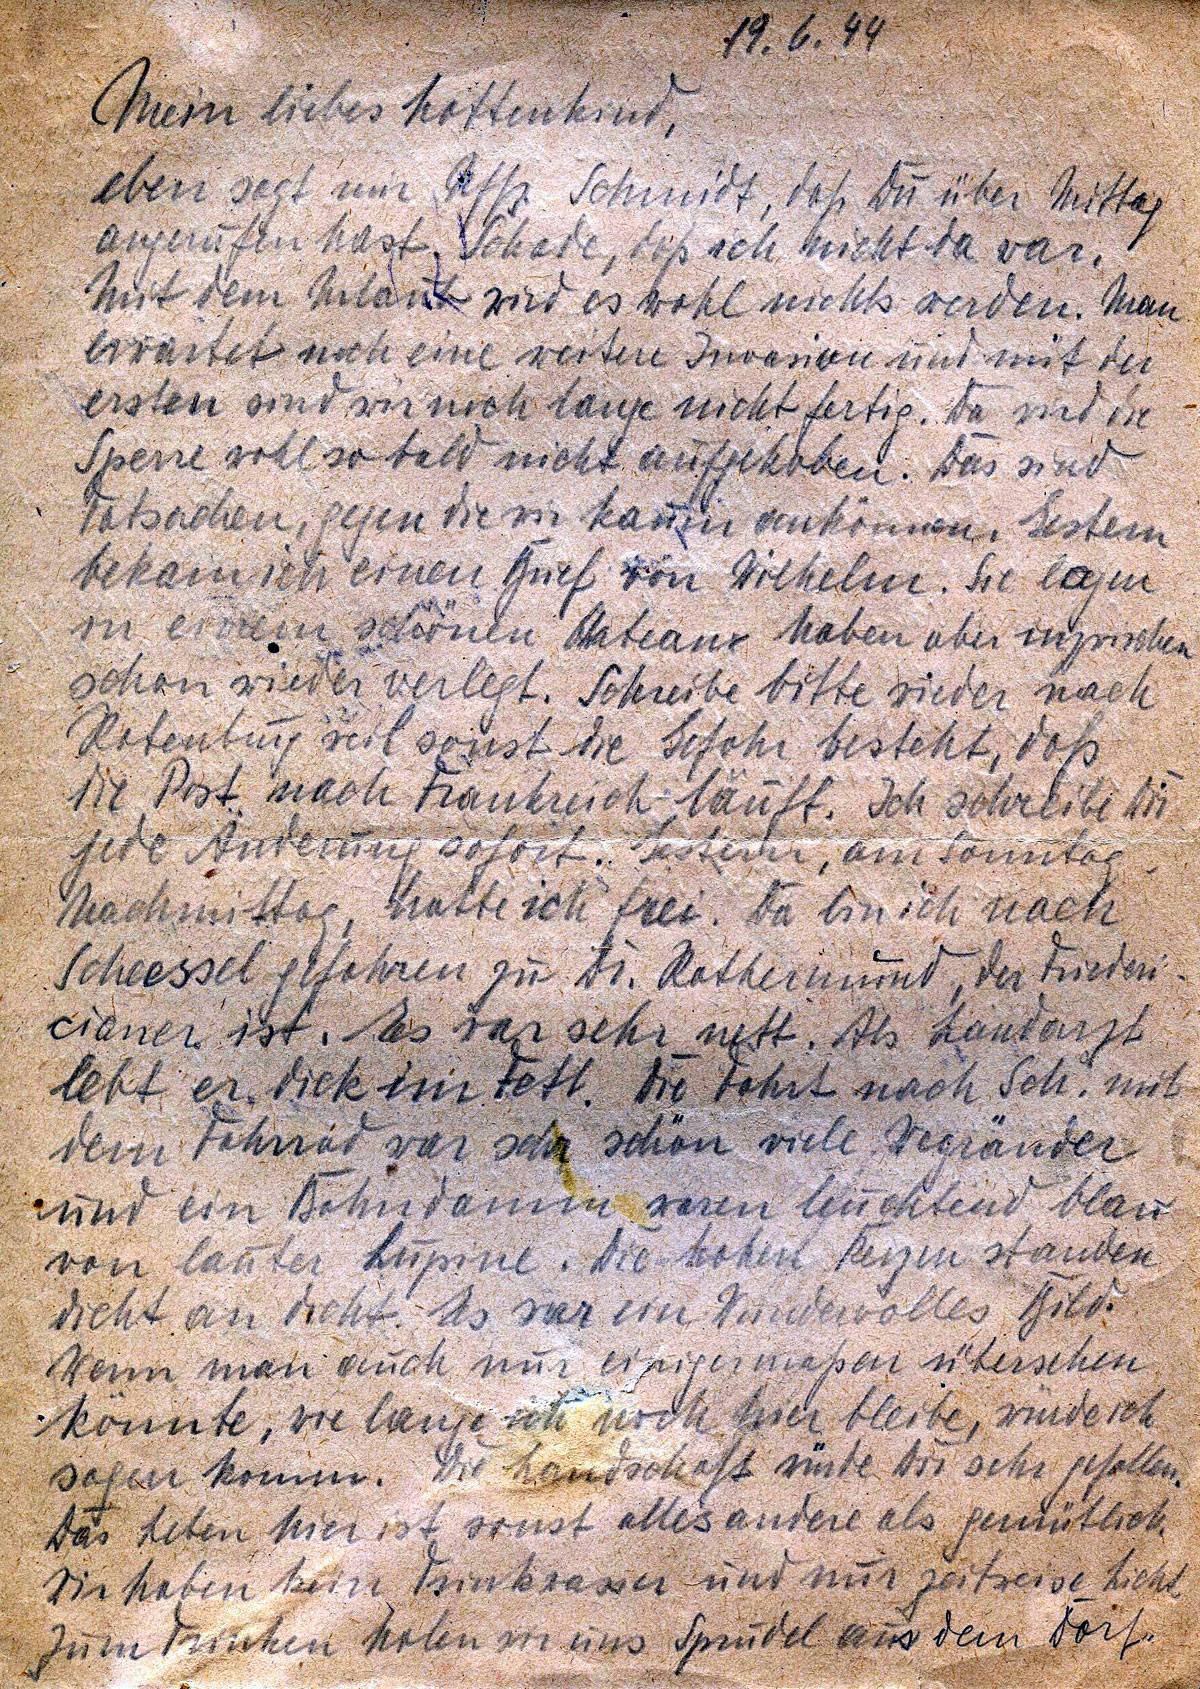 19. 6. 44
Mein liebes Mottenkind,
eben sagt mir Uffz. Schmidt, daß Du über Mittag
angerufen hast. Schade, daß ich nicht da war.
Mit dem Urlaub wird es wohl nichts werden. Man
erwartet noch eine weitere Invasion und mit der
ersten sind wir noch lange nicht fertig. Da wird die
Sperre wohl so bald nicht aufgehoben. Das sind
Tatsachen, gegen die wir kaum ankönnen. Gestern
bekam ich einen Brief von Wilhelm. Sie lagen
in einem schönen Chateaux haben aber inzwischen
schon wieder verlegt. Schreibe bitte wieder nach
Rotenburg weil sonst die Gefahr besteht, daß
die Post nach Frankreich läuft. Ich schreibe Dir
jede Änderung sofort. Gestern, am Sonntag
Nachmittag, hatte ich frei. Da bin ich nach
Scheessel gefahren zu Dr. Rothermund, der Frideri-
cianer ist. Es war sehr nett. Als Landarzt
lebt er dick im Fett. Die Fahrt nach Sch. mit
dem Fahrrad war sehr schön viele Wegränder
und ein Bahndamm waren leuchtend blau
von lauter Lupine. Die hohen Kerzen standen
dicht an dicht. Es war ein Wundervolles Bild.
Wenn man auch nur einigermaßen übersehen
könnte, wie lange ich noch hier bleibe, würde ich
sagen komm. Die Landschaft würde Dir sehr gefallen.
Das Leben hier ist sonst alles andere als gemütlich.
Wir haben kein Trinkwasser und nur zeitweise Licht
Zum Trinken holen wir uns Sprudel aus dem Dorf.